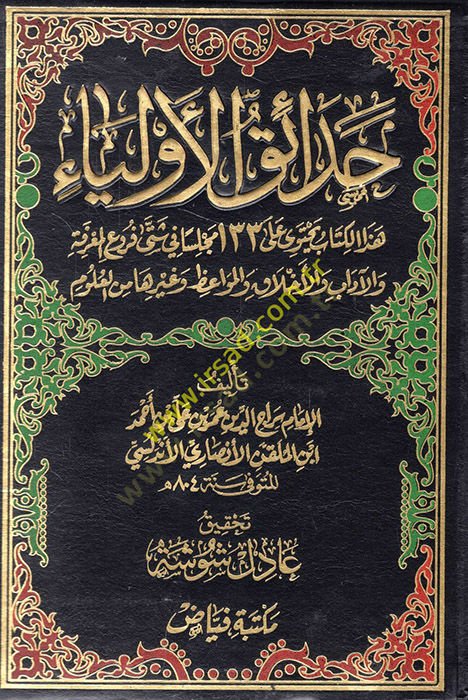 حدائق الأولياء
هذا الكتاب يحتوى على ١٣٣ مجلسا في شتى فروع المعرفة
والآداب والأخلاق والمواعظ وغيرها من العلوم
تأليف
الإمام سراج الدين عمر بن علي بن أحمد
ابن الملقن الأنصاري الأندلسي
المتوفى سنة ٨٠٤ هـ
تحقيق
عادل شوشة
مكتبة فياض
www.irsad.com.fr